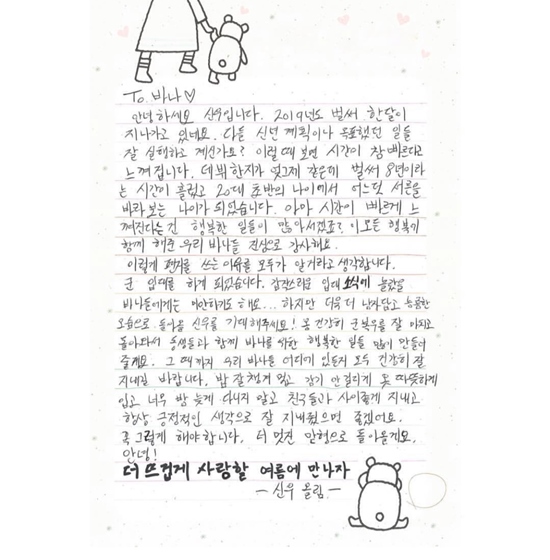 To. 바나♡
안녕하세요 신우입니다. 2019년도 벌써 한달이
지나가고 있네요. 다들 신년 계획이나 목표했던 일들
잘 실행하고 계신가요? 이럴때 보면 시간이 참 빠르다고
느껴집니다. 데뷔한지가 엊그제 같은데 벌써 8년이라
는 시간이 흘렀고 20대 초반의 나이에서 어느덧 서른을
바라보는 나이가 되었습니다. 아마 시간이 빠르게 느
껴진다는건 행복한 일들이 많아서겠죠? 이 모든 행복이
함께 해준 우리 바나들 진심으로 감사해요.
이렇게 편지를 쓰는 이유를 모두가 알거라고 생각합니다.
군 입대를 하게 되었습니다. 갑작스러운 입대 소식에 놀랐을
바나들에게는 미안하기도 해요... 하지만 더욱 더 남자답고 늠름한
모습으로 돌아올 신우를 기대해주세요! 몸 건강히 군복무를 잘 마치고
돌아와서 동생들과 함께 바나를 위한 행복한 일들 많이 만들어
줄게요. 그 때까지 우리 바나들 어디에 있든지 모두 건강히 잘
지내길 바랍니다. 밥 잘 챙겨 먹고 감기 안걸리게 옷 따뜻하게
입고 너무 밤 늦게 다니지 말고 친구들과 사이좋게 지내고
항상 긍정적인 생각으로 잘 지내줬으면 좋겠어요.
꼭 그렇게 해야합니다. 더 멋진 만형으로 돌아올게요.
안녕!
더 뜨겁게 사랑할 여름에 만나자
- 신우 올림 -